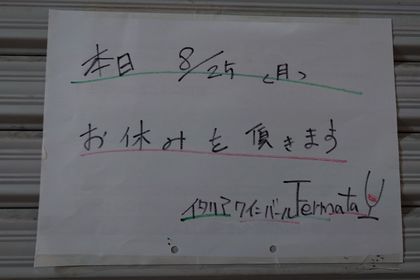 本日 8/25(月)
お休みを頂きます
イタリアワインバール Fermata